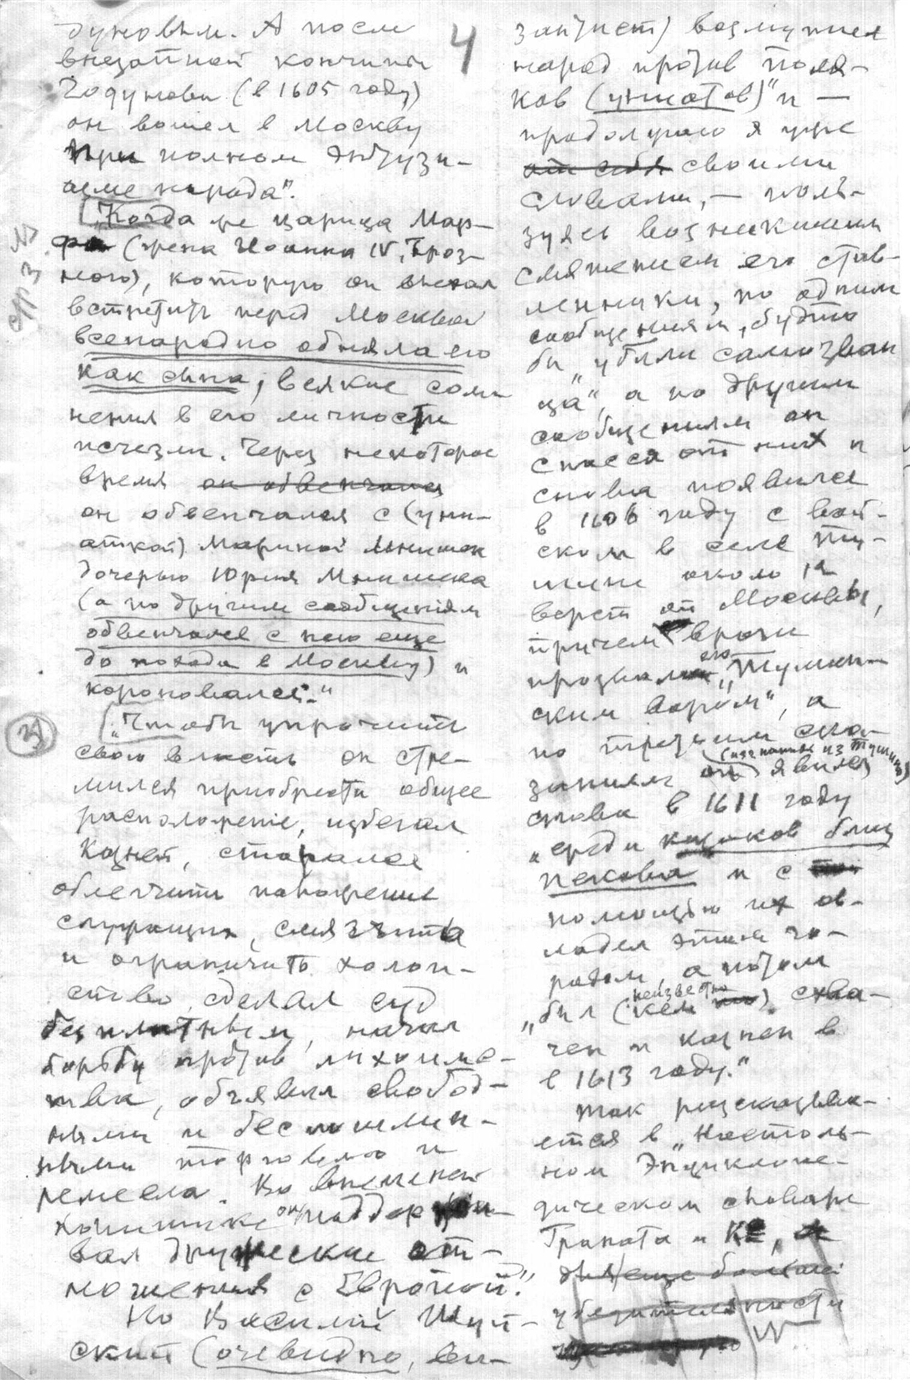 4
дуновым. А после
внезапной кончины
Годунова (в 1605 году)
он вошел в Москву
при полном энтузи-
азме народа".
"Когда же царица Мар-
фа (жена Иоанна IV, Гроз-
ного), которую он выехал
встретить перед Москвой
всенародно обняла его
как сына, всякие сом-
нения в его личности
исчезли. Через некоторое
время он обвенчался
он обвенчался с (уни-
аткой) Мариной Мнишек
дочерью Юрия Мнишека
(а по другим сообщениям
обвенчался с нею еще
до похода в Москву) и
короновался."
"Чтобы упрочить
свою власть он стре-
мился приобрести общее
расположение, избегал
казней, старался
облегчить положение
служащих, смягчить
и ограничить холоп-
ство, сделал суд
бесплатным, начал
борьбу против лихоимс-
тва, объявил свобод-
ными и беспошлин-
ными торговлю и
ремесла. Во внешней
политике он поддержи-
вал дружеские от-
ношения с Европой."
Но Василий Шуй-
ский (очевидно,
возмутил
народ против поля-
ков (униатов)" и —
продолжаю я уже
от себя своими
словами, — поль-
зуясь возникшим
смятением его став-
ленники, по одним
сообщениям, будто
бы "убили самозван
ца", а по другим
сообщениям он
спасся от них и
снова появился
в 1606 году с вой-
ском в селе Ту-
шине около 12
верст от Москвы,
причем враги
прозвали его "Тушин-
ским вором", а
по третьим ска-
заниям он (изгнанный из Тушина) явился
снова в 1611 году
"среди казаков близ
Пскова и с
помощью их ов-
ладел этим го-
родом, а потом
"был (неизвестно кем) схва-
чен и казнен в
в 1613 году."
Так рассказыва-
ется в "Настоль-
ном Энциклопе-
дическом словаре
Граната и Ко,
для еще большей
убедительности